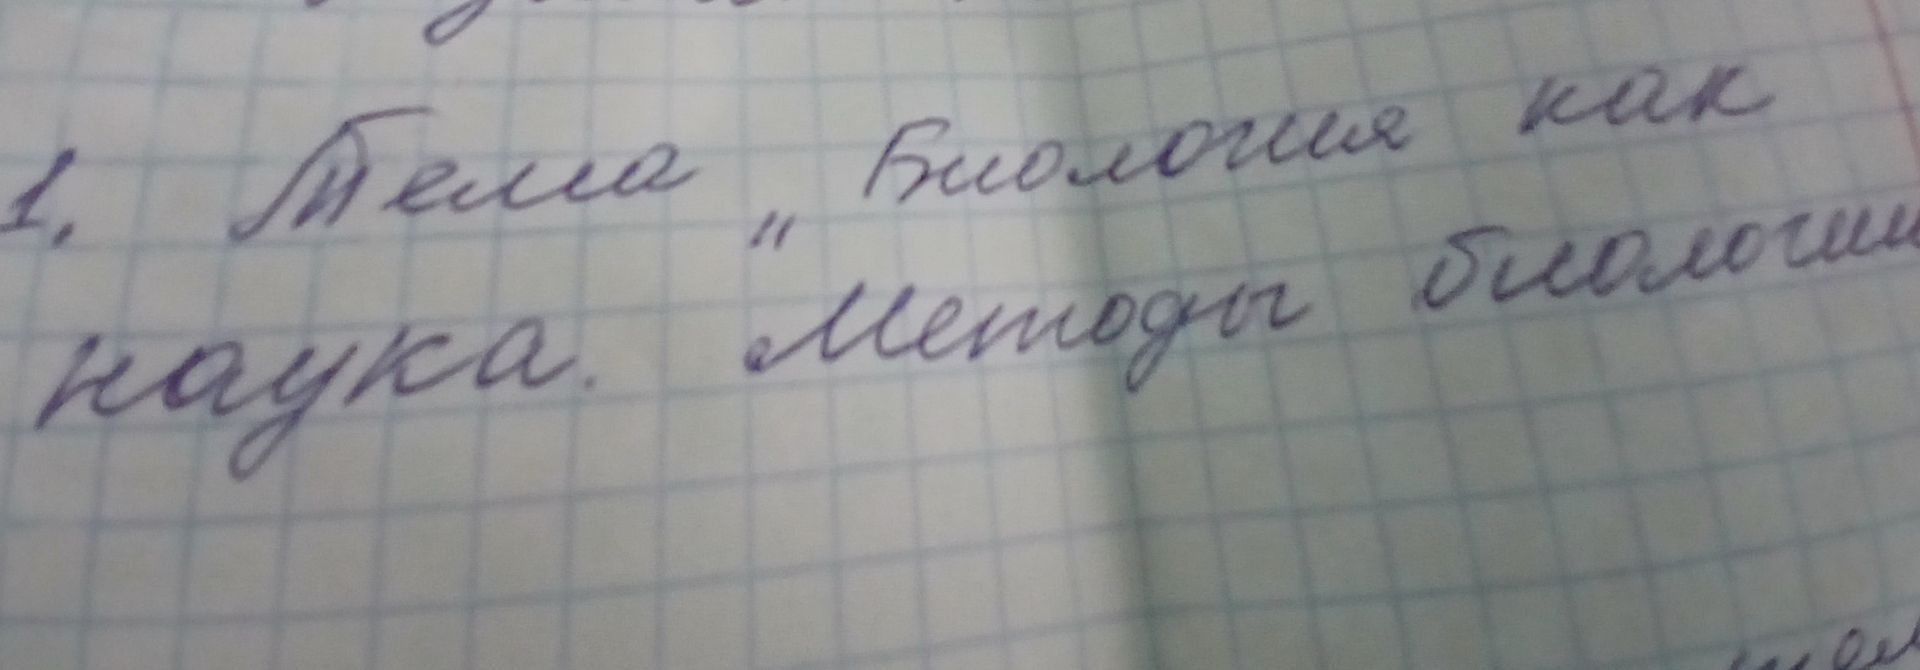 1. Тема „Биология как
наука. Методы биологии